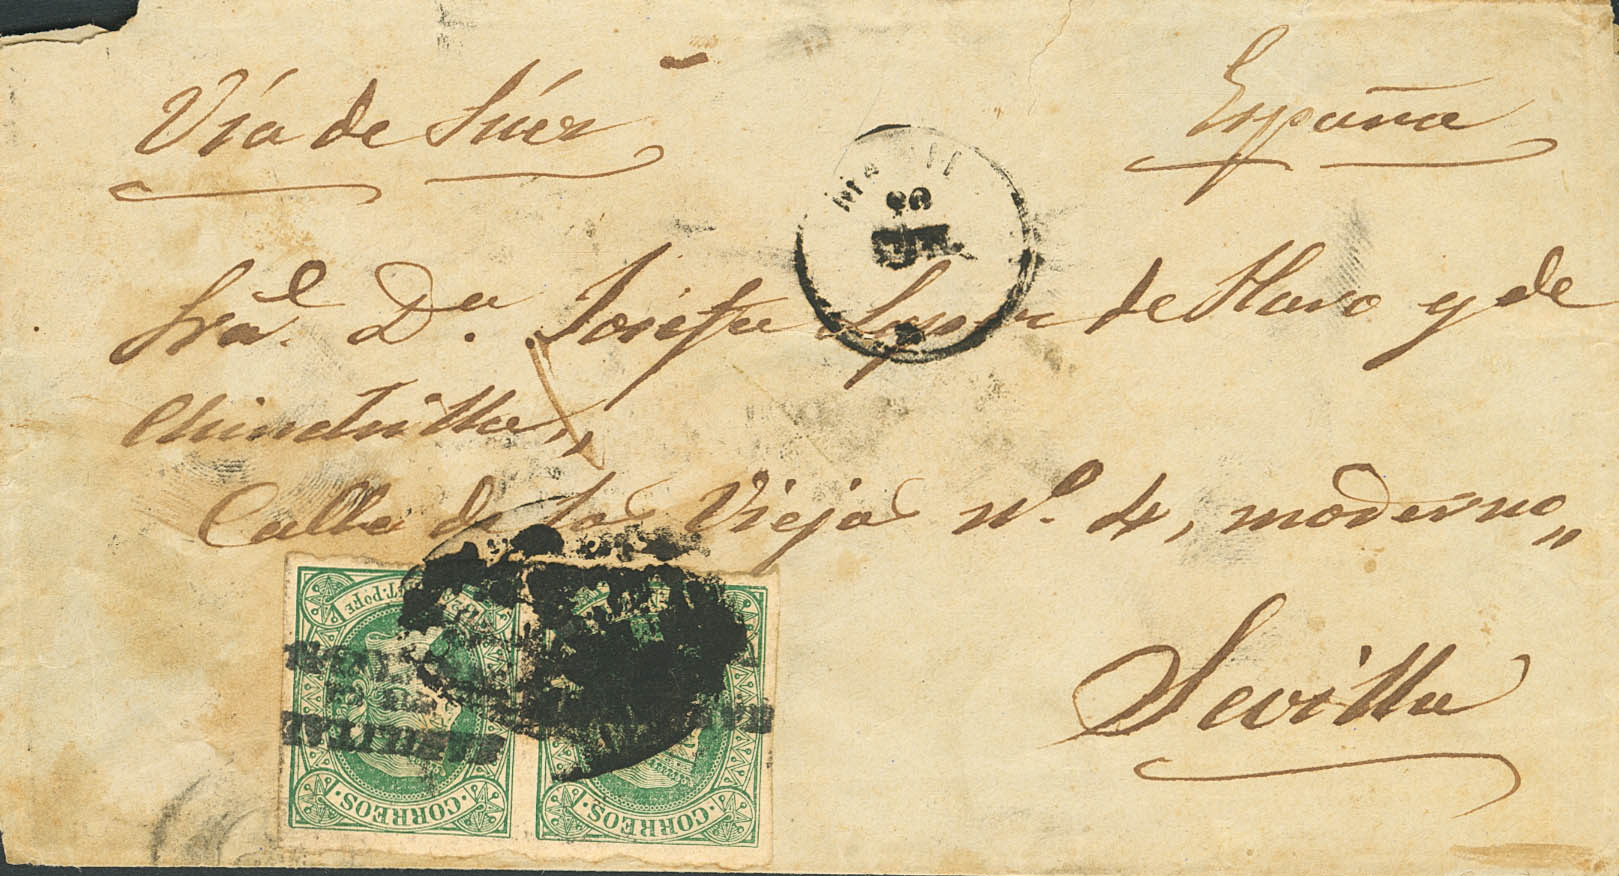 Vía de Súez
España
Sra. Dª. Josefa Lopez de Haro y de
Chindrilla,,
Calle de las Viejas nº. 4, moderno,,
Sevilla
CORREOS
CORREOS